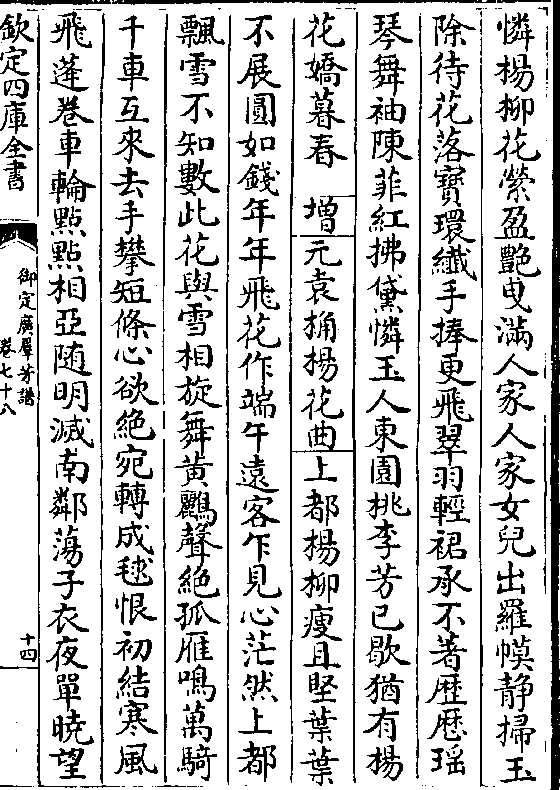 憐楊柳花縈盈艷曵滿人家人家女兒出羅幙静掃玉
除待花落寳環纎手捧更飛翠羽輕裙承不著歴歴瑶
琴舞袖陳菲紅拂黛憐玉人東園桃李芳已歇猶有楊
花嬌暮春　增　元袁桷楊花曲　上都楊柳瘦且堅葉葉
不展圓如錢年年飛花作端午逺客乍見心茫然上都
飄雪不知數此花與雪相旋舞黄鸝聲絶孤雁鳴萬騎
千車互來去手攀短條心欲絶宛轉成毬恨初結寒風
飛蓬卷車輪點點相亞随明滅南鄰蕩子衣夜單曉望
欽定四庫全書
御定廣羣芳譜
卷七十八
十四